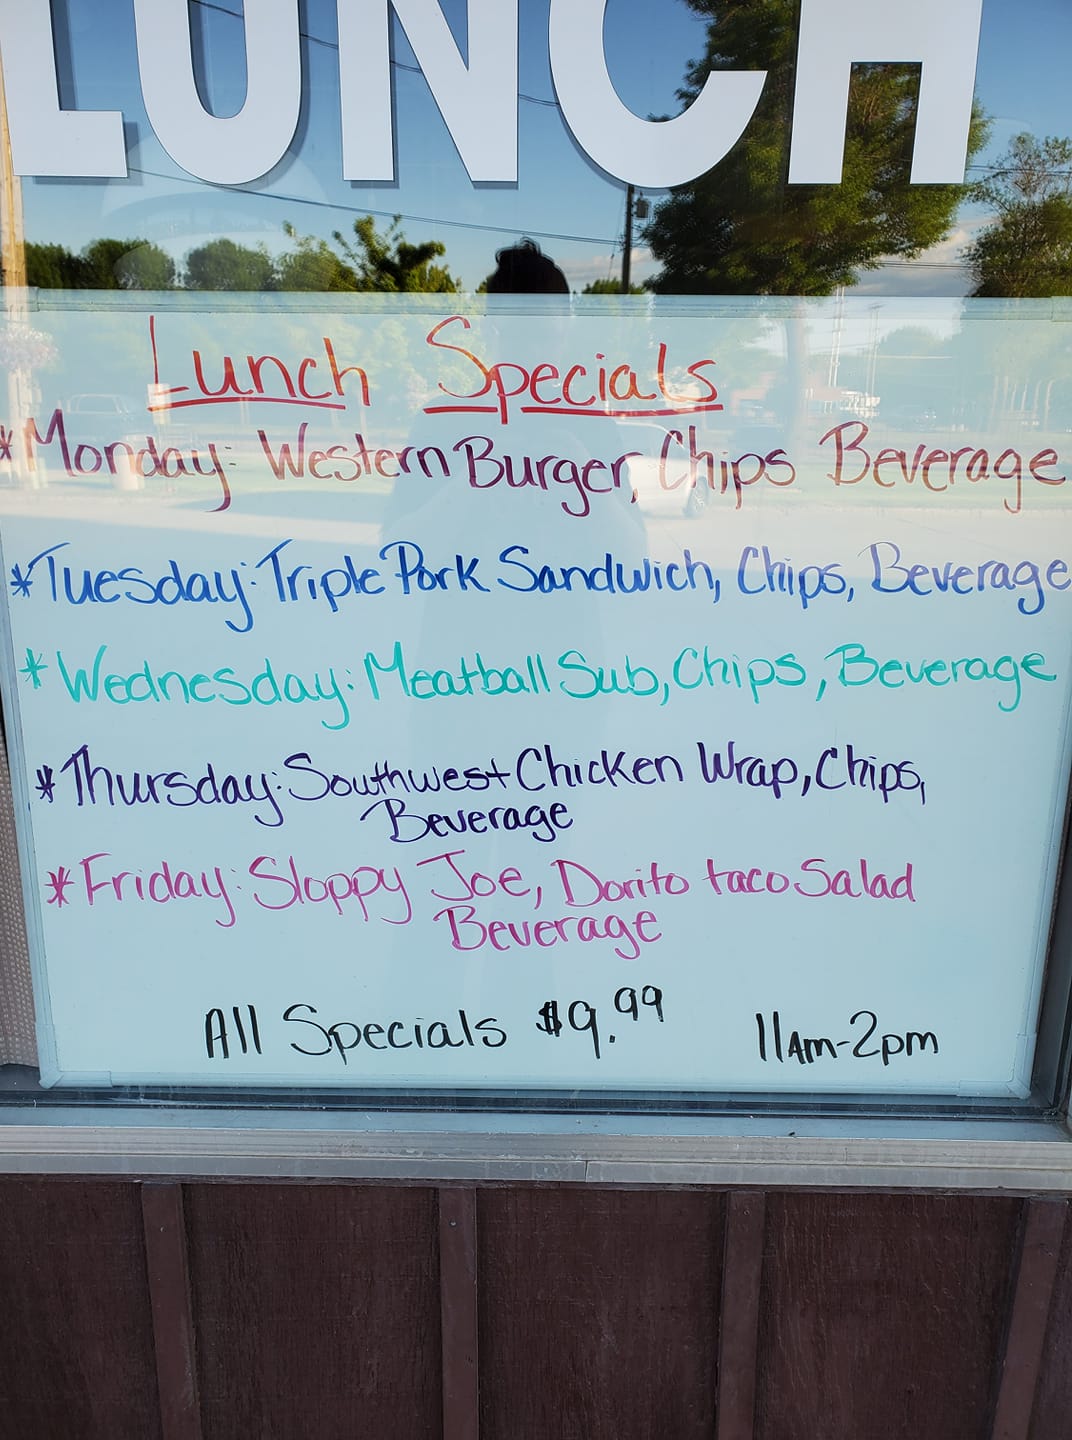 LUNCH
Lunch Specials
*Monday: Western Burger, Chips Beverage
*Tuesday: Triple Pork Sandwich, Chips, Beverage
*Wednesday: Meatball Sub, Chips, Beverage
*Thursday: Southwest Chicken Wrap, Chips,
Beverage
*Friday: Sloppy Joe, Dorito taco Salad
Beverage
All Specials $9.99 11Am-2pm